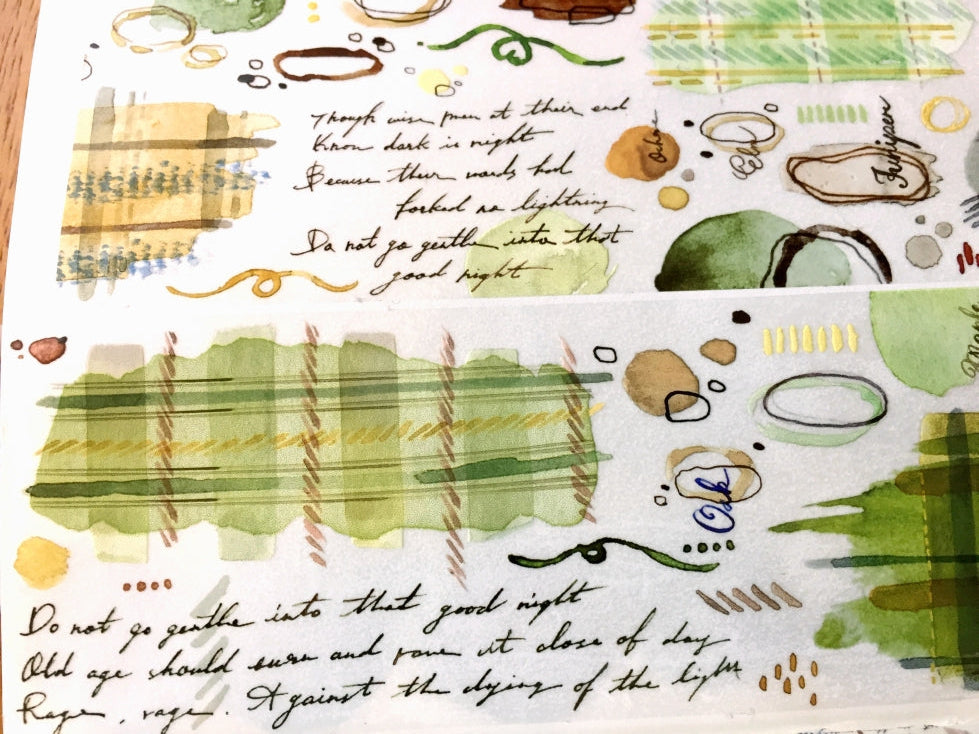 Though wise men at their end
Know dark is right
Because their words had
forked no lightning
Do not go gentle into that
good night
Ochre
Elm
Juniper
Maple
Oak
Do not go gentle into that good night
Old age should burn and rave at close of day
Rage, rage. Against the dying of the light